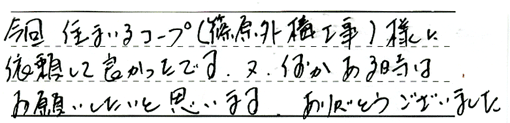 今回 住まいるコープ(篠原外構工事)様に
依頼して良かったです。又、何かある時は
お願いしたいと思います。ありがとうございました